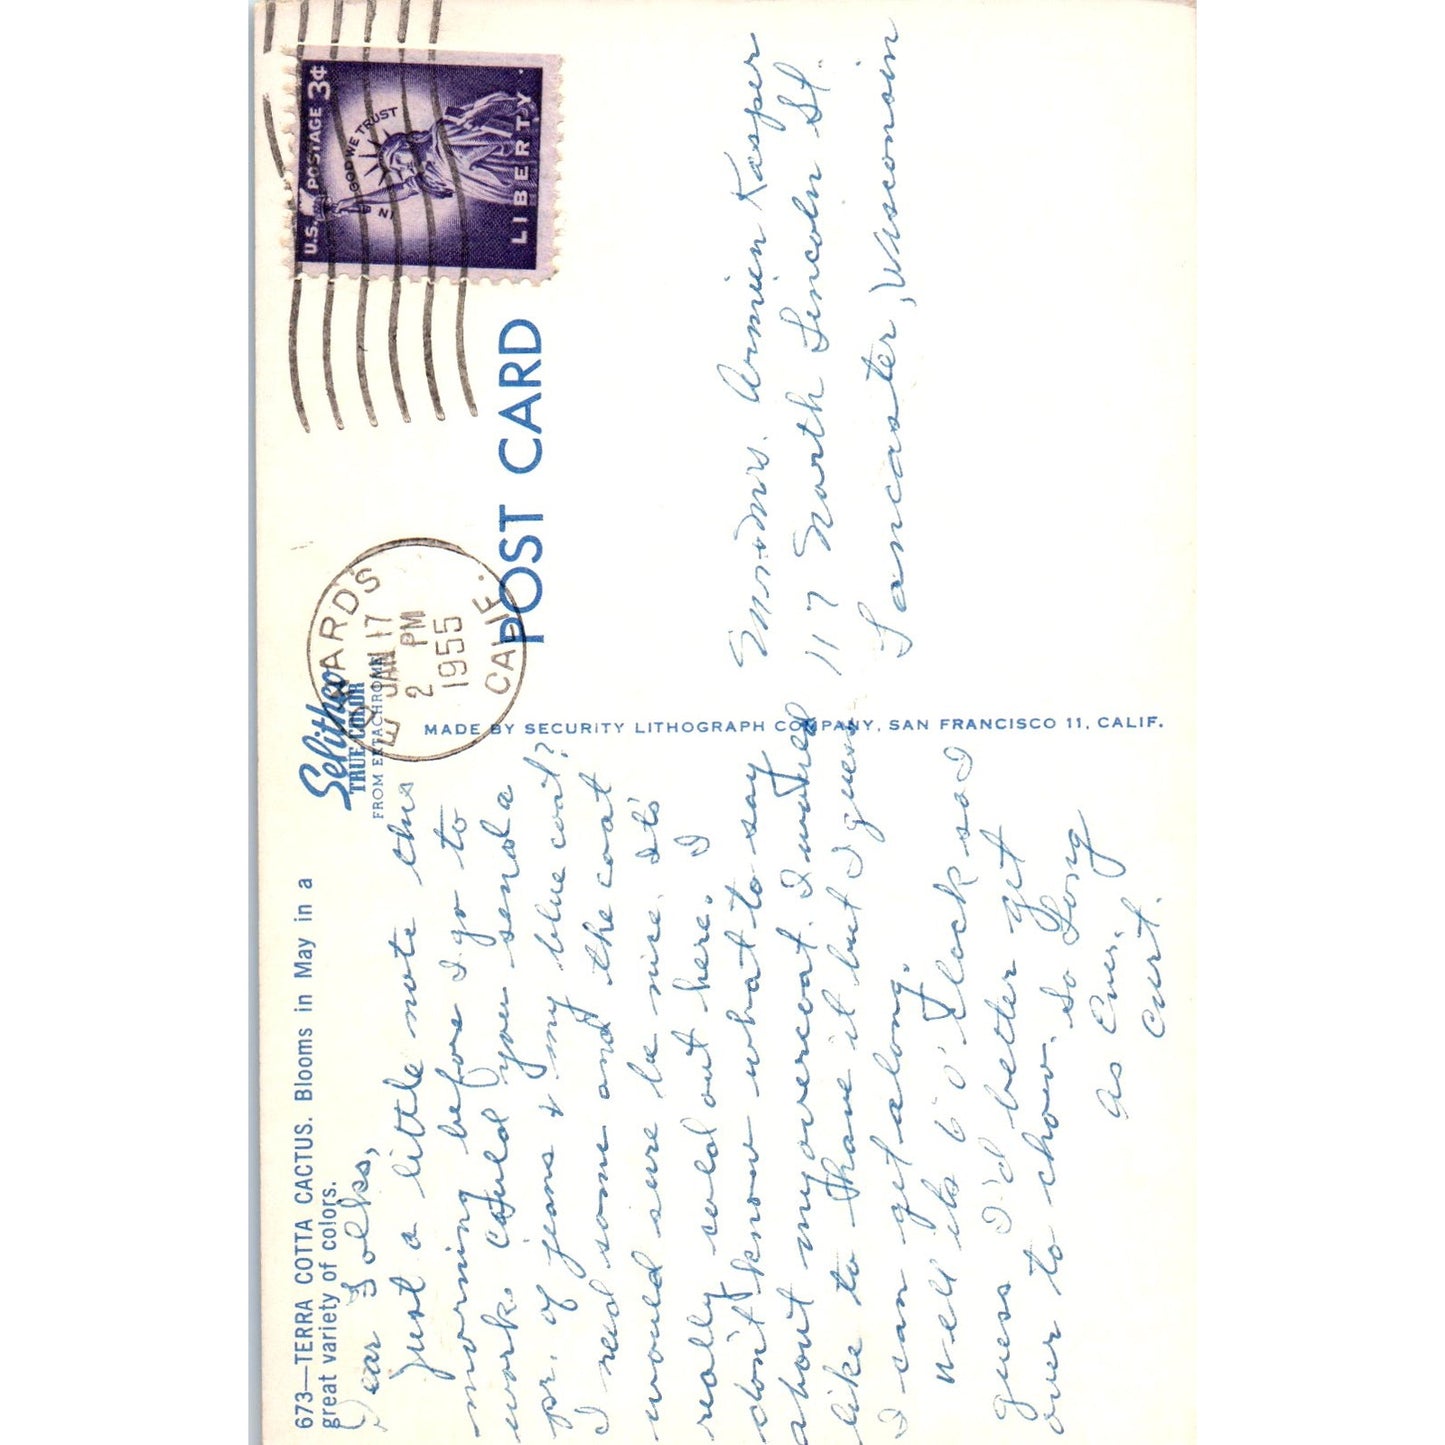 673—TERRA COTTA CACTUS. Blooms in May in a
great variety of colors.
Selithco
TRUE COLOR
FROM EKTACHROME
Dear Folks,
Just a little note this
morning before I go to
work. Could you send a
pr. of jeans & my blue coat?
I need some and the coat
would sure be nice. It's
really cold out here. I
don't know what to say
about my overcoat. I would
like to have it but I guess
I can get along.
Well its 6 o'clock so I
guess I'd better get
over to chow. So Long
As Ever,
Curt.
MADE BY SECURITY LITHOGRAPH COMPANY, SAN FRANCISCO 11, CALIF.
POST CARD
EDWARDS
JAN 17
2 PM
1955
CALIF.
U.S. POSTAGE 3¢
IN GOD WE TRUST
LIBERTY
Mr. & Mrs. Armien Kasper
117 North Lincoln St.
Lancaster, Wisconsin